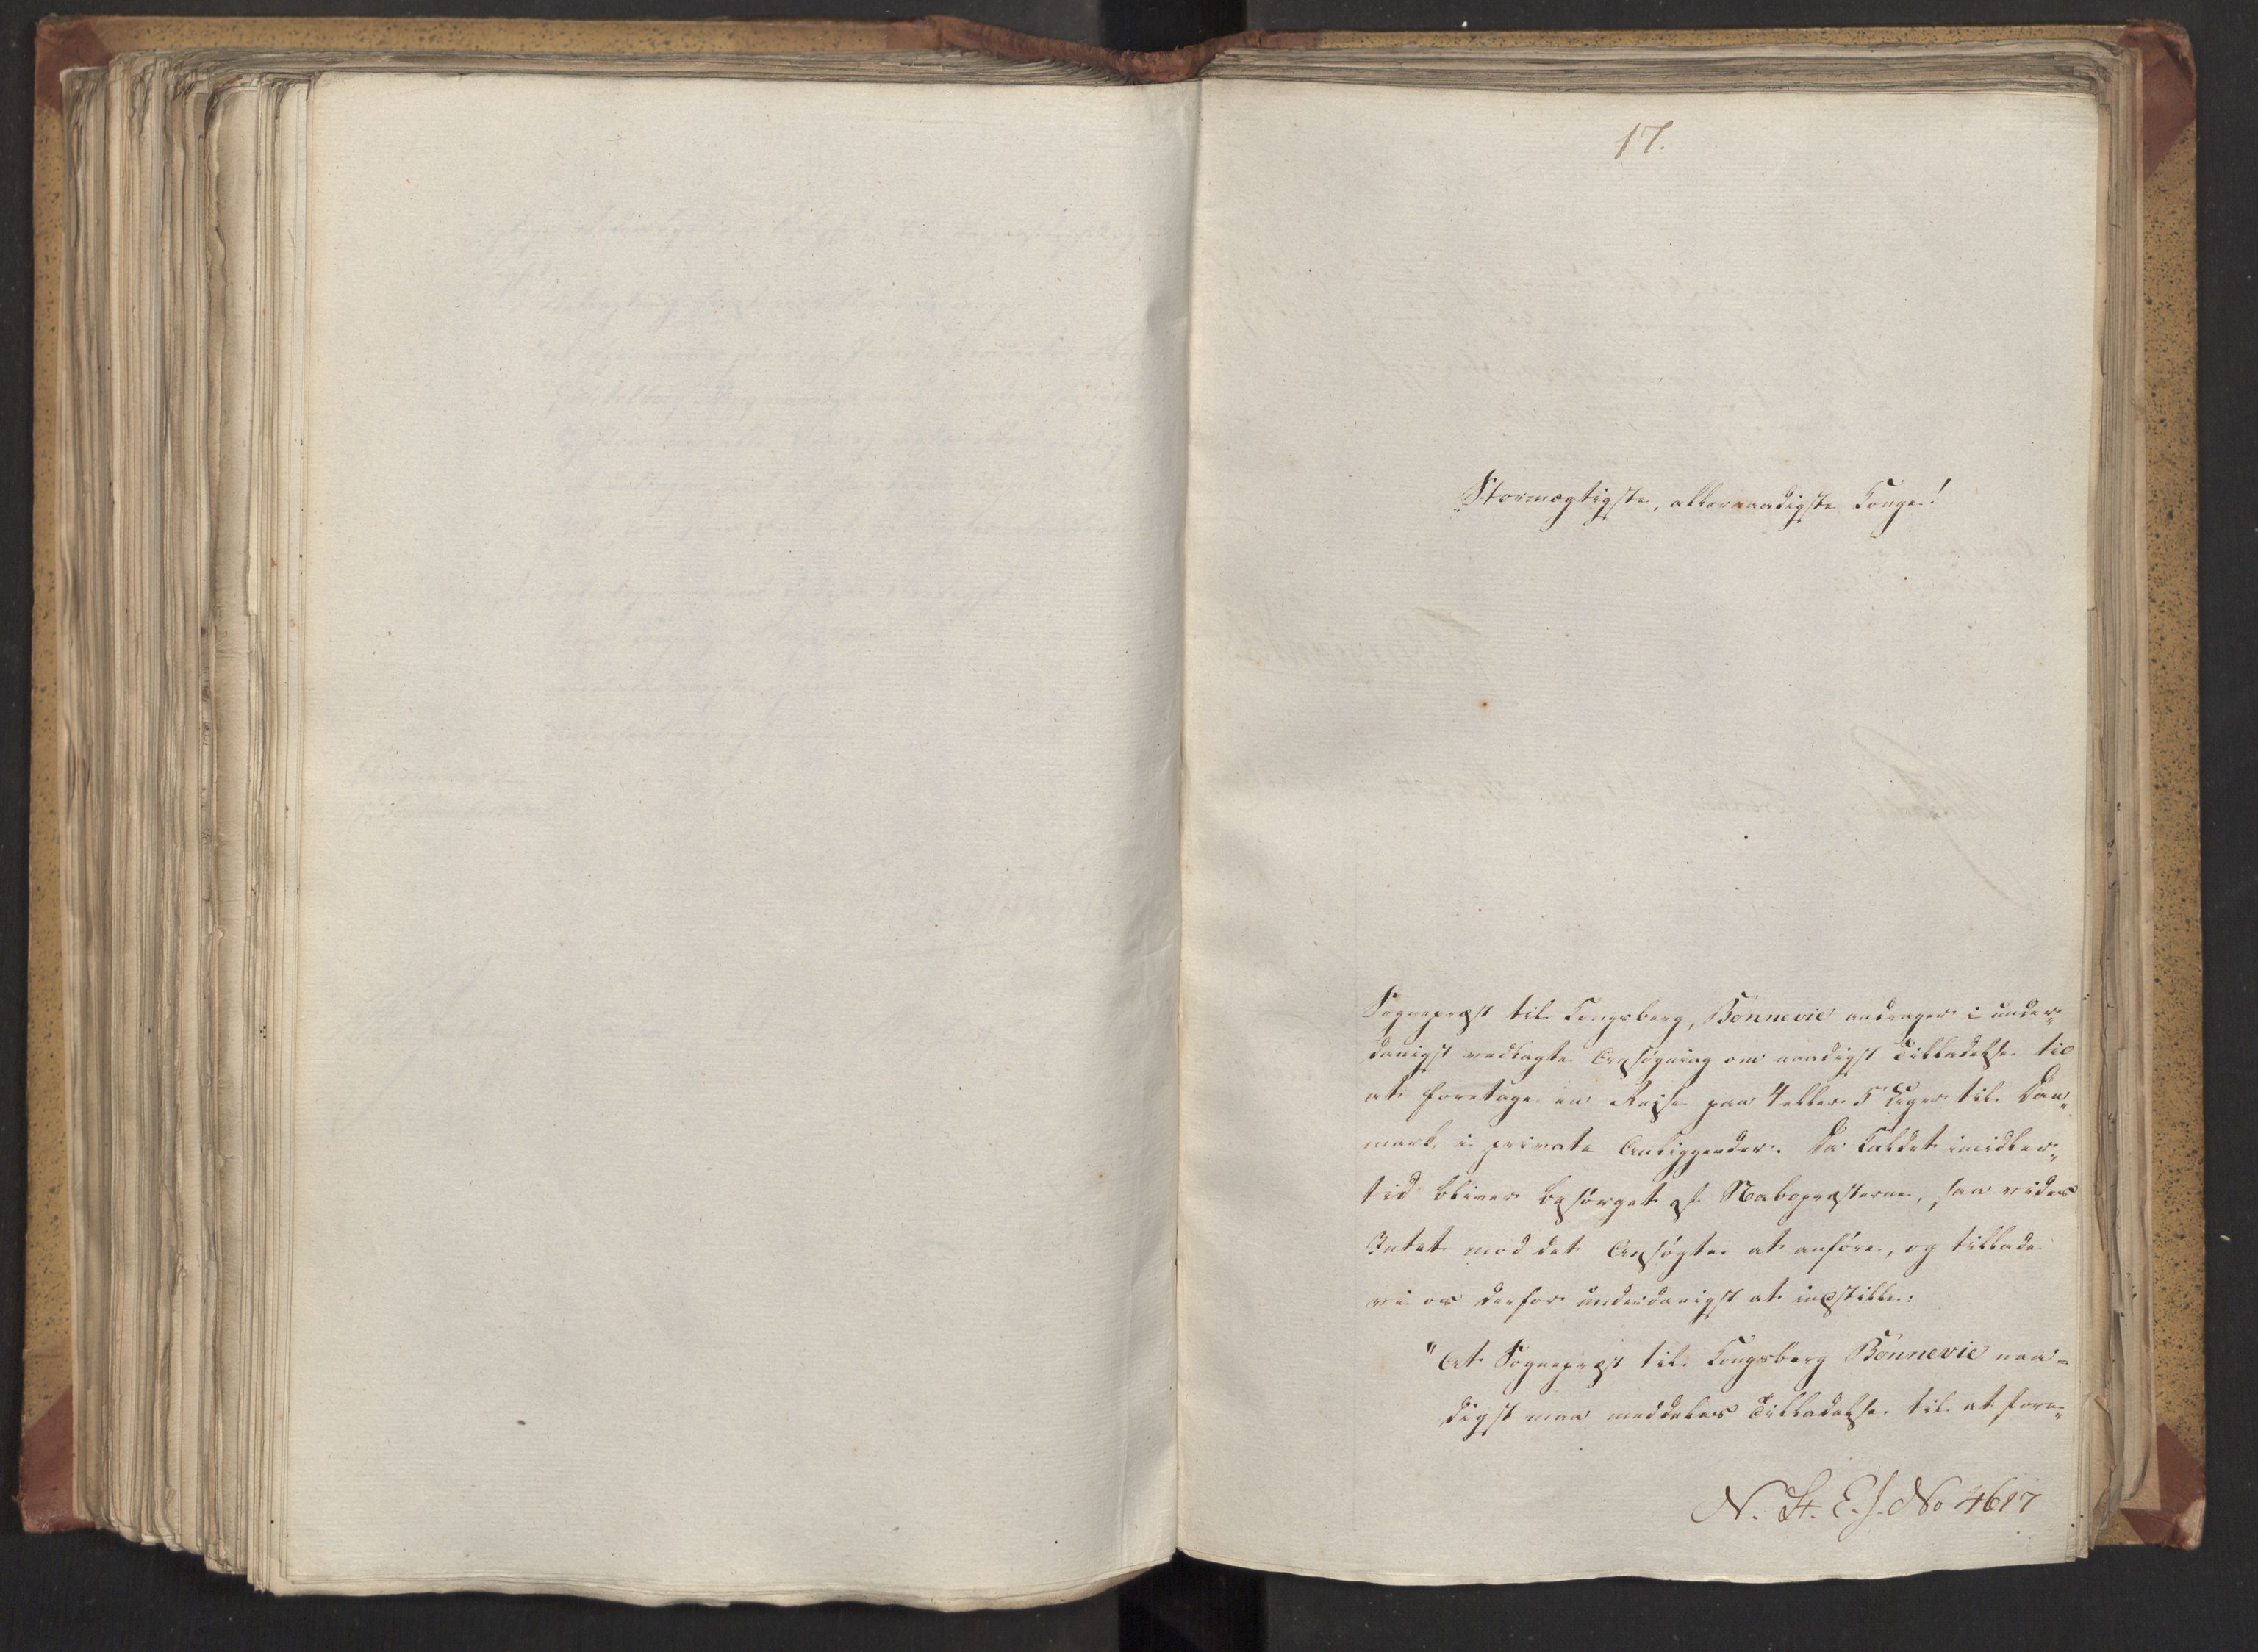 17.
Stormægtigste, allernaadigste Konge!
Sognepræst til Kongsberg, Bonnevie andrager i under„
danigst vedlagte Ansøgning om naadigst Tilladelse til
at foretage en Reise paa 4 eller 5 Uger til Dan„
mark i private Anliggender. Da Kaldet imidler„
tid bliver besørget af Nabopræsterne, saa vides
Intet mod det Ansøgte at anføre, og tillade
vi os derfor underdanigst at indstille:
"At Sognepræst til Kongsberg Bonnevie naa=
digst maa meddeles Tilladelse til at fore„
N. St. E. J. No 4617